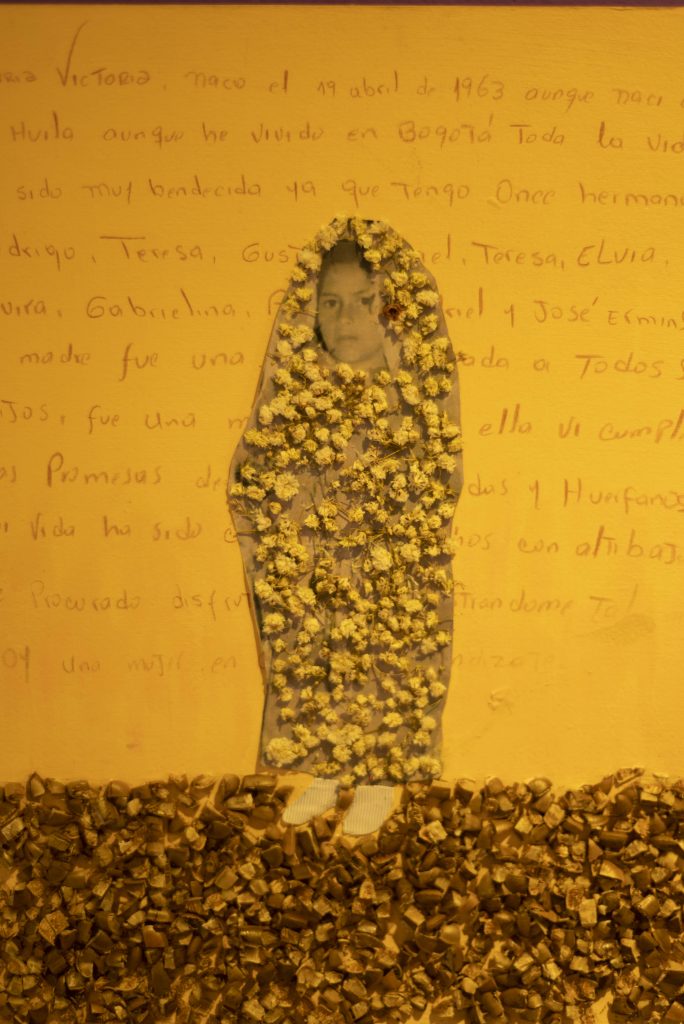 VICTORIA, naco el 19 abril de 1963 aunque naci
Huila aunque he vivido en Bogotá Toda la vid
sido muy bendecida ya que Tengo Once herman
drigo, Teresa, Gus el, Teresa, ELVIA,
vira, Gabrielina, riel y José Ermins
madre fue una ada a Todos s
ijos, fue una m ella vi cumpli
as Promesas de das y Huerfanos
i vida ha sido c hos con altibaj
Procurado disfru trandome Tal
oy una mujer en